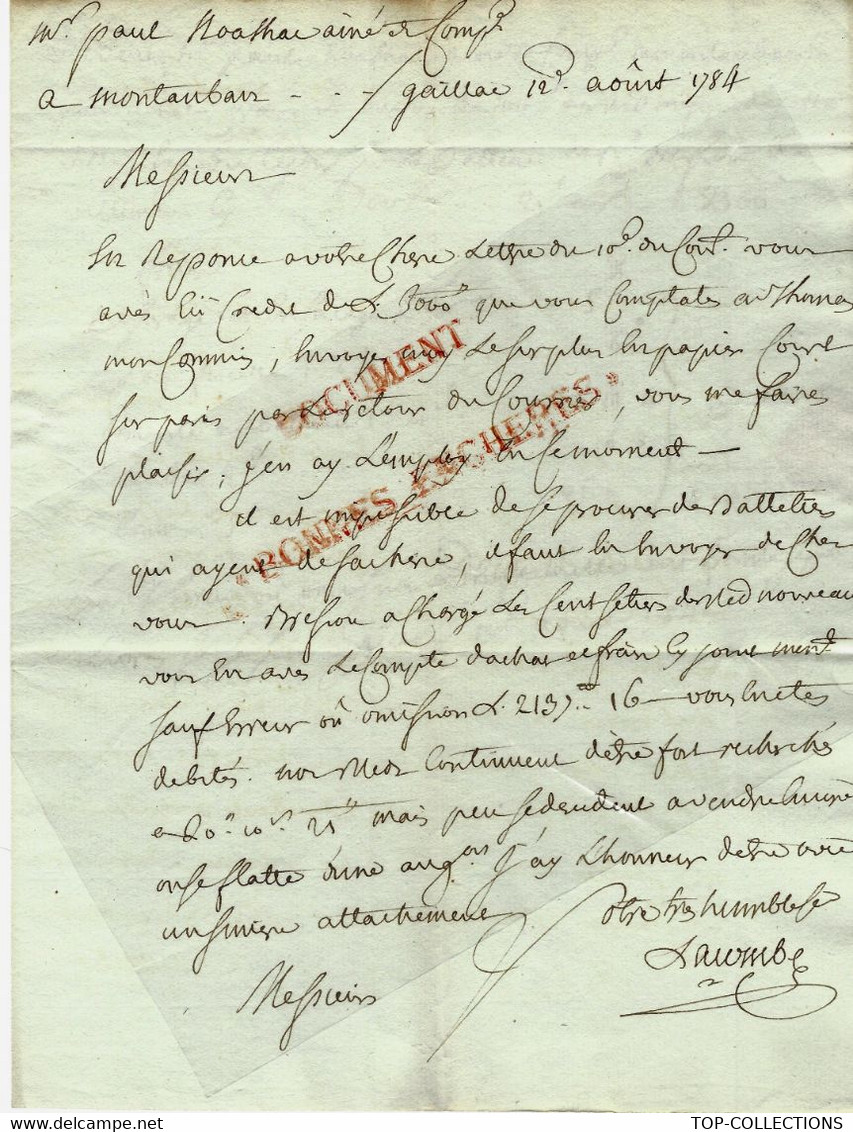 Mrs. paul Noalhac ainé & Compe
a montauban - - - / gaillac 12e. aôust 1784
Messieurs
En Reponce a votre Chere Lettre du 10e. du Cort. vous
avés Eü Credit de L. 3000 que vous Comptates a Thomas
mon Commis, Envoyes moy Le Surplus En papier Court
sur paris par Le retour du Courrier, vous me faires
plaisir, j'en ay L'employ En Se moment —
il est impossible de Se procurer des Batteliers
qui ayent de Sacherie, il faut En Envoyer de Chez
vous. Bression a Chargé Les Cent Setiers de Bled nouveau
vous En avés Le Compte d'achat et frais Cy joint montt
Sauf Erreur où omission L. 2137.. 16 — vous En etes
debités. nos Bleds Continuent d'être fort recherchés
a 20.. 10s. 21 mais peu Se decident a vendre
on Se flatte d'une augon J'ay L'honneur d'etre avec
un Sincere attachement
Votre tres humble Se
Messieurs
Lacombe
DOCUMENT
"BONNES ENCHERES"
TOP-COLLECTIONS